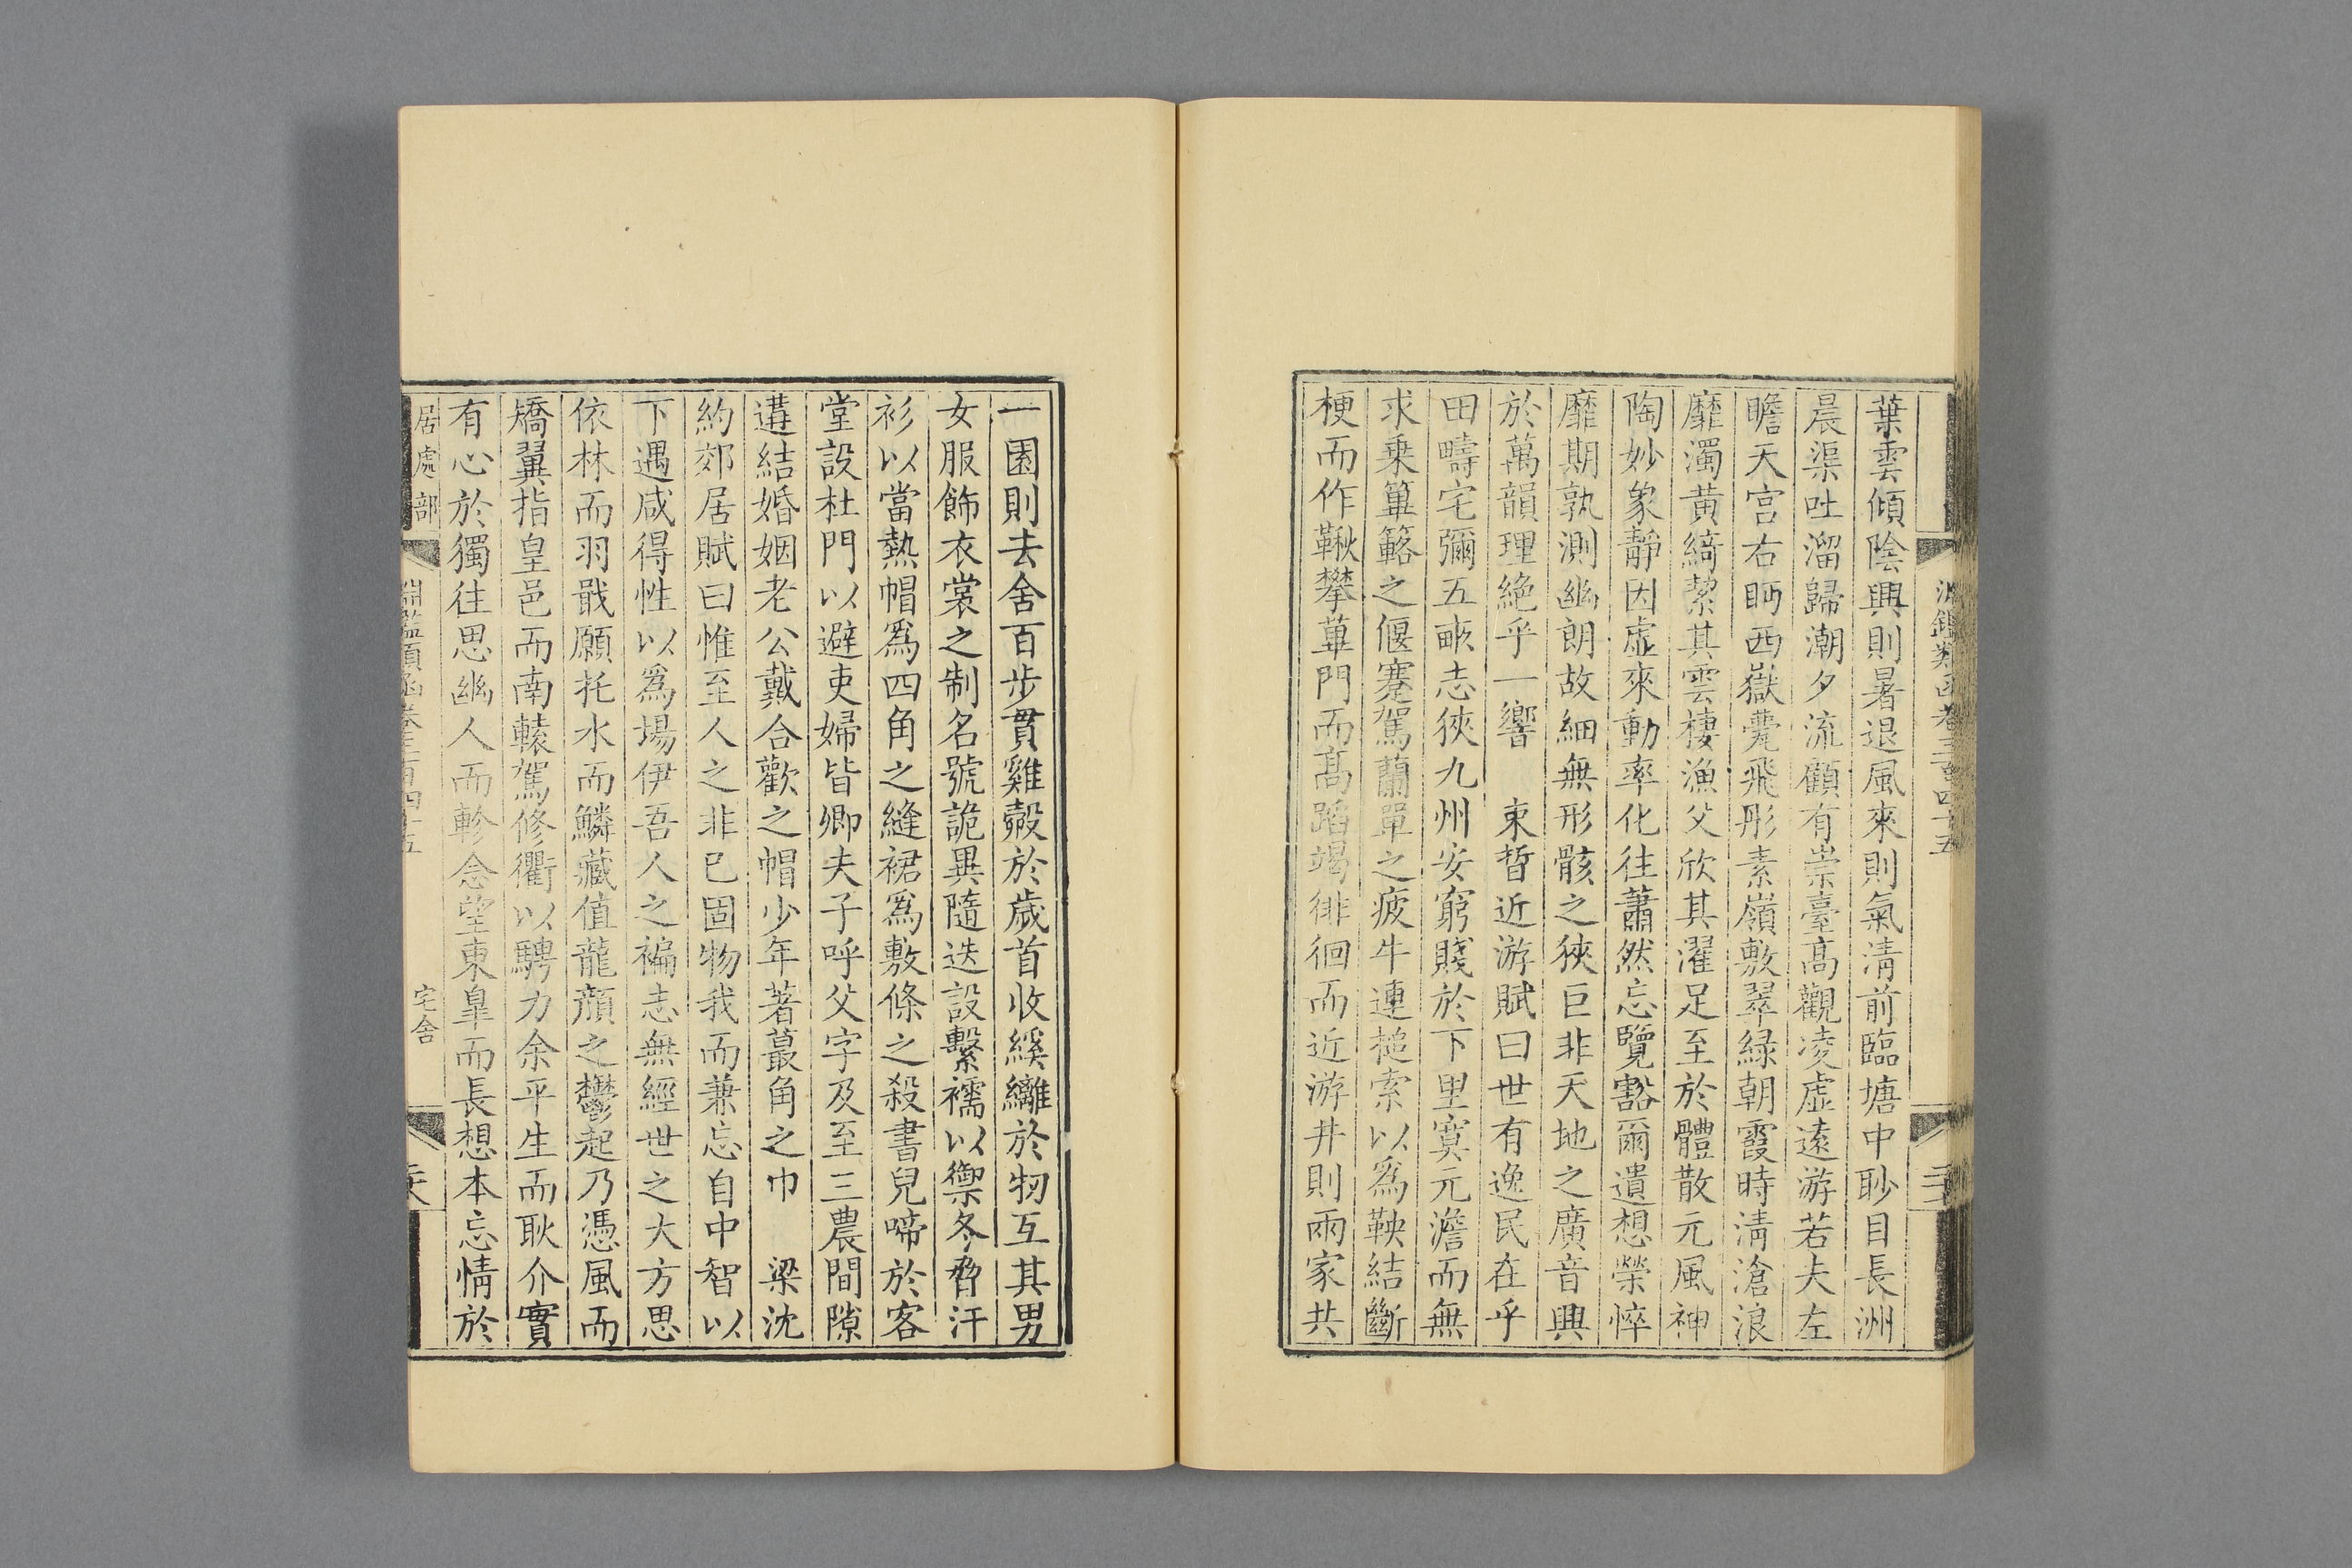 葉雲傾陰興則暑退風來則氣清前臨塘中眇目長洲
晨渠吐溜歸潮夕流顧有崇臺高觀凌虛遠游若夫左
瞻天宮右眄西嶽甍飛彤素嶺敷翠綠朝霞時清滄浪
靡濁黃綺絜其雲棲漁父欣其濯足至於體散元風神
陶妙象靜因虛來動率化往蕭然忘覽豁爾遺想榮悴
靡期孰測幽朗故細無形骸之狹巨非天地之廣音興
於萬韻理絶乎一響　束晳近游賦曰世有逸民在乎
田疇宅彌五畝志狹九州安窮賤於下里寞元澹而無
求乗篳輅之偃蹇駕蘭單之疲牛連槌索以爲鞅結斷
梗而作鞦攀蓽門而高蹈竭徘徊而近游井則兩家共
一園則去舍百步貫雞觳於歲首收緱纚於牣互其男
女服飾衣裳之制名號詭異隨迭設繫襦以禦冬脅汗
衫以當熱帽爲四角之縫裙爲數條之殺書兒啼於客
堂設杜門以避吏婦皆卿夫子呼父字及至三農間隙
遘結婚姻老公戴合歡之帽少年著蕞角之巾　梁沈
約郊居賦曰惟至人之非已固物我而兼忘自中智以
下遇咸得性以爲場伊吾人之褊志無經世之大方思
依林而羽戢願托水而鱗藏值龍顔之鬱起乃憑風而
矯翼指皇邑而南轅駕修衢以騁力余平生而耿介實
有心於獨往思幽人而軫念望東皐而長想本忘情於
居處部
宅舍